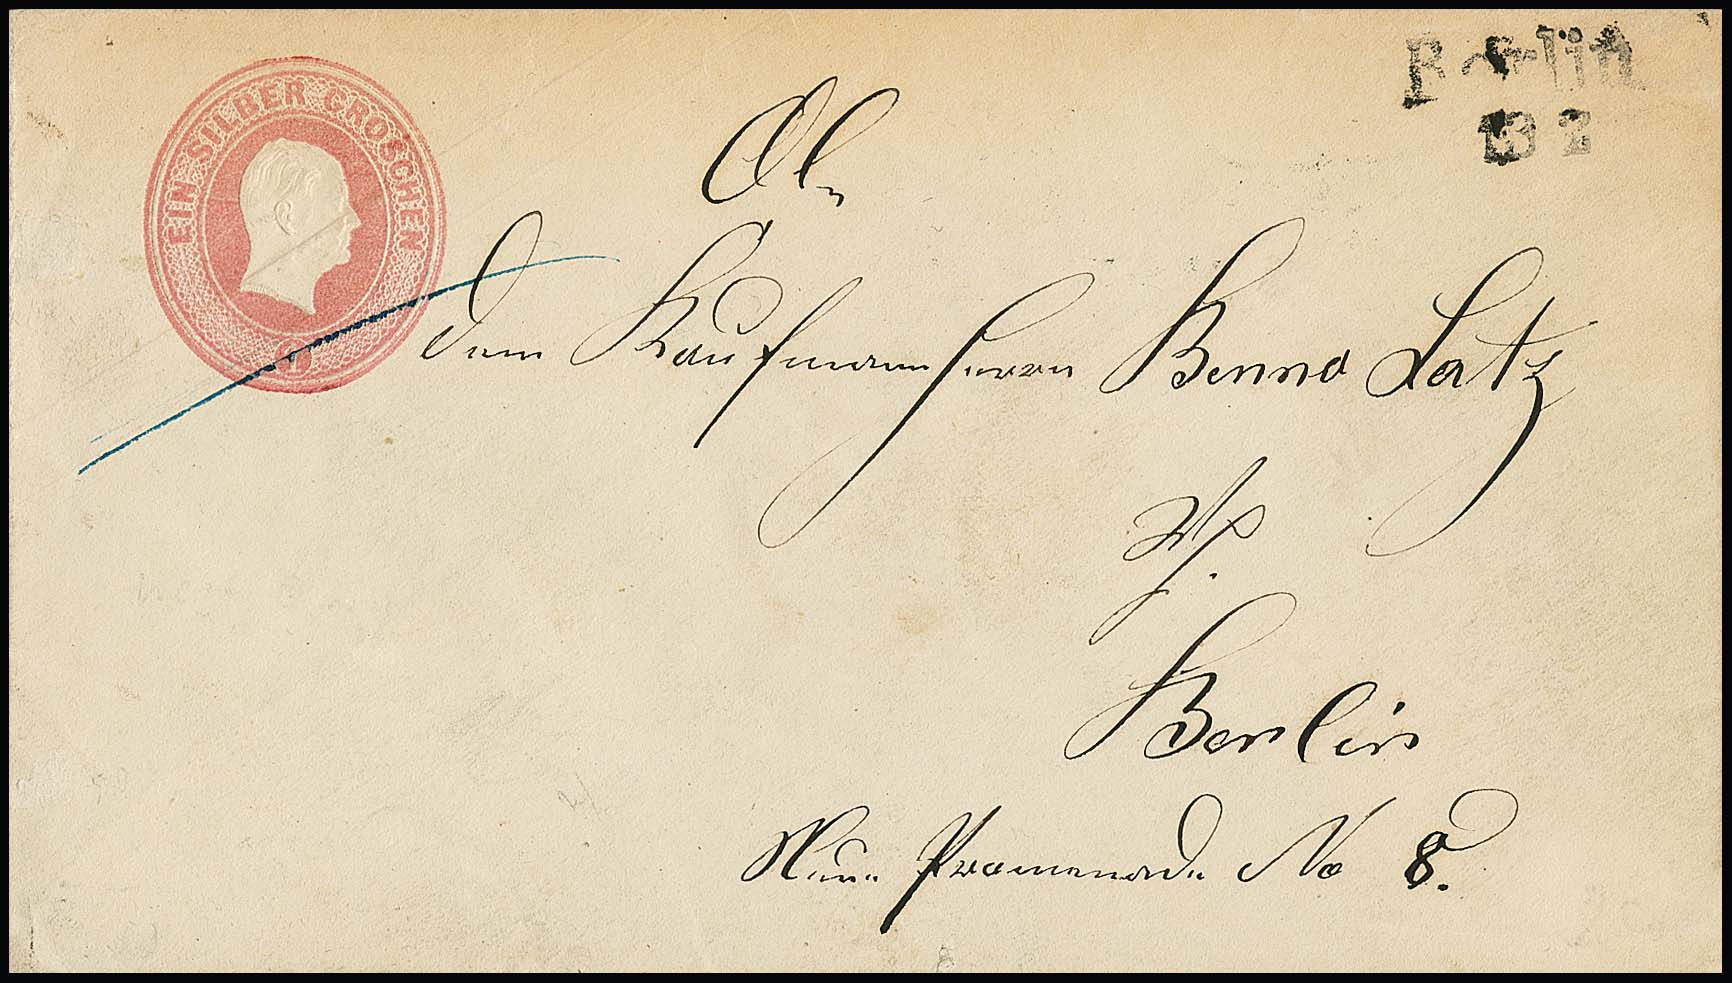 EIN SILBER GROSCHEN
1
Berlin
13 2
An
dem Kaufmann Herrn Benno Latz
Berlin
Neue Promenade No 8.